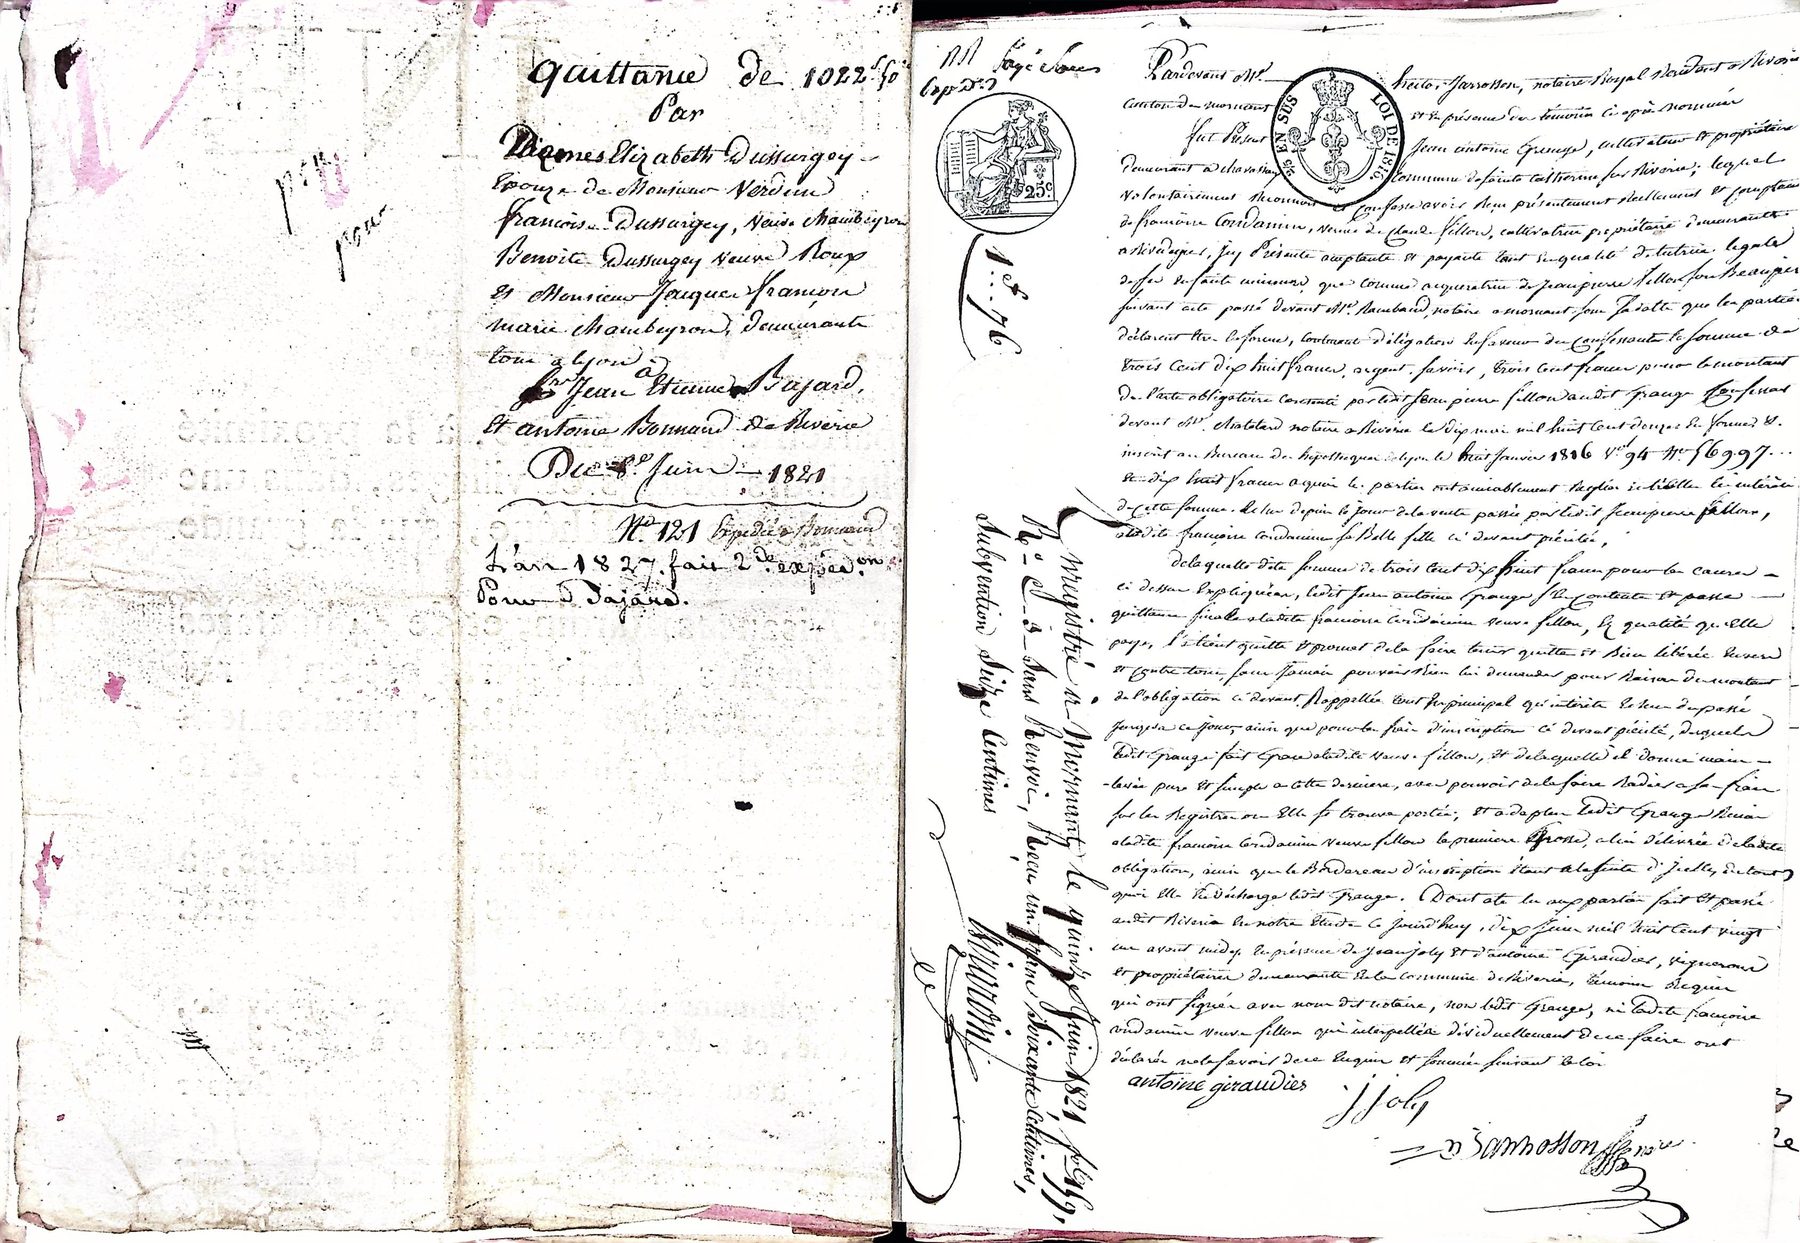 quittance de 1022 f 50 c
Par
Dames Elizabeth Dussurgey
Epouze de Monsieur Verdun
françoise Dussurgey, veuve Chambeyron
Benoite Dussurgey veuve Roux
et Monsieur Jacques françois
marie Chambeyron, demeurants
tous a lyon
à
Jean Etienne Bajard,
et antoine Bonnand de Riverie
Du 8e Juin 1821
No. 121 Expédié a Bonnand
L'an 1827. fait 2de expéd.on
Pour Bajard.
pour
EN SUS LOI DE 1816.
25c
1 et 76
Pardevant Me hector Jarrosson, notaire Royal Résidant a Riverie
canton de mornant et en présence des témoins ci après nommés
fut Présent Jean antoine Grange, cultivateur et propriétaire
demeurant a Commune de sainte Catherine sur Riverie; lequel
volontairement Reconnait et Confesse avoir Reçu présentement Réellement et comptant
de françoise Condamin, veuve de claude fillon, cultivatrice propriétaire demeurante
a Riverie, Icy Présente acceptante et payante tant en qualité de tutrice legale
de ses enfants mineurs, que comme acqueratrice de Jean pierre fillon son Beau pere
suivant acte passé devant Me Rambaud, notaire a mornant sous sa datte que les parties
déclarent etre en forme, contenant délégation en faveur du confessant la somme de
trois Cent dix huit francs, argent, savoir, trois cent francs pour le montant
de l'acte obligatoire contracté par ledit Jean pierre fillon audit Grange Confessant
devant Me Chatelard notaire a Riverie le dix mai mil huit Cent douze en forme &
inscrit au Bureau des hypothèques de lyon le huit Janvier 1816 Vol 94 No 56997...
et dix huit francs a quoi les parties ont amiablement Reglés les intérêts
de cette somme échus depuis le Jour de la vente passée par ledit Jean pierre fillon,
a ladite françoise Condamin sa Belle fille ci devant précitée,
de laquelle dite somme de trois Cent dix huit francs pour les causes
ci dessus Expliquées, ledit Jean antoine Grange se Contente et passe
quittance finale a ladite françoise Condamin veuve fillon, Es qualité qu'elle
paye, l'en tient quitte et promet de la faire tenir quitte et Bien libérée Envers
et contre tous sans Jamais pouvoir Rien lui demander pour Raison du montant
de l'obligation ci devant Rappellée tant en principal qu'intérêts échus du passé
Jusqu'a ce Jour, ainsi que pour les frais d'inscription ci devant précité, desquels
ledit Grange fait Grace a ladite veuve fillon, et de laquelle il donne main
levée pure et simple a cette derniere, avec pouvoir de la faire Radier a ses frais
sur les Registres ou Elle se trouve portée; et a de plus ledit Grange Remis
a ladite françoise Condamin veuve fillon la premiere Grosse, a lui délivrée de ladite
obligation, ainsi que le Bordereau d'inscription étant a la suite d'Icelle, du tout
quoi Elle En décharge ledit Grange. Dont acte lu aux parties fait et passé
audit Riverie En notre Etude Ce Jourd'huy, dix Juin mil huit Cent vingt
un avant midy, En présence de Jean Joly et d'antoine Giraudier, vignerons
et propriétaires demeurants En la commune de Riverie, témoins Requis
qui ont signés avec nous dit notaire, non ledit Grange, ni ladite françoise
Condamin veuve fillon qui interpellés dividuellement de ce faire ont
déclarés ne le savoir de ce Enquis et sommés suivant la loi
antoine giraudier
J Joly
Jarrosson
Enregistré a Mornant, le quinze Juin 1821, fo 169,
Ro C. 3 Sans Renvoi, Reçu un franc soixante Centimes,
Subvention Seize Centimes